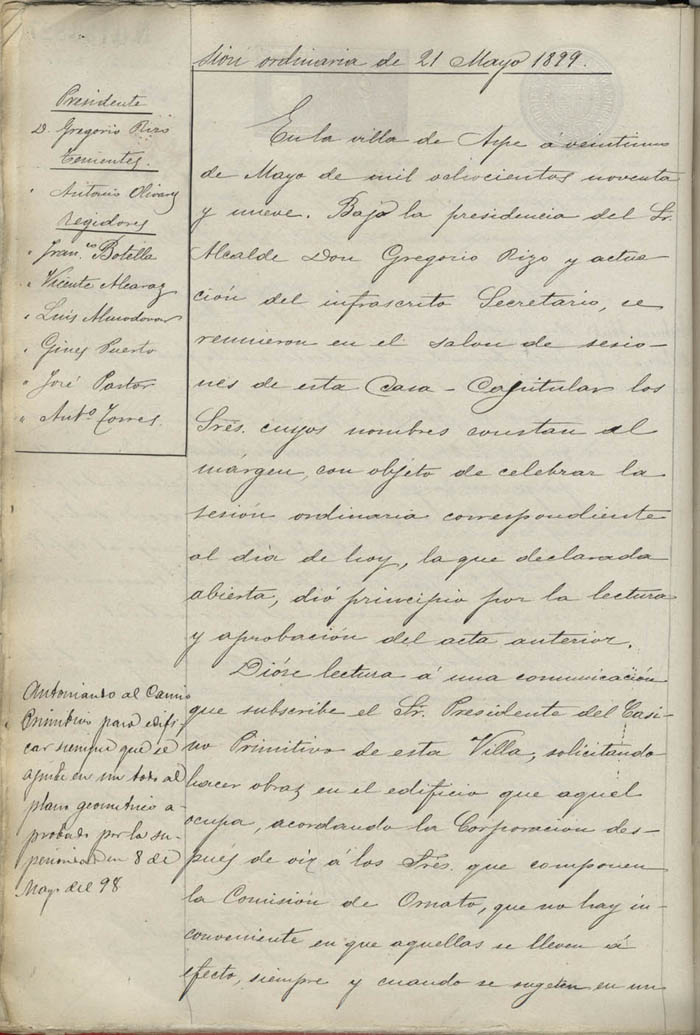 sion ordinaria de 21 Mayo 1899.
Presidente
D. Gregorio Rizo
Tenientes.
" Antonio Olivares
Regidores
" Fran.co Botella
" Vicente Alcaraz
" Luís Almodovar
" Ginés Puerto
" José Pastor
" Ant.o Torres.
En la villa de Aspe á veintiuno
de Mayo de mil ochocientos noventa
y nueve. Bajo la presidencia del Sr.
Alcalde Don Gregorio Rizo y actua
ción del infrascrito Secretario, se
reunieron en el salon de sesio-
nes de esta Casa-Capitular los
Sres. cuyos nombres constan al
márgen, con objeto de celebrar la
sesión ordinaria correspondiente
al día de hoy, la que declarada
abierta, dió principio por la lectura
y aprobación del acta anterior.
Dióse lectura á una comunicación
que subscribe el Sr. Presidente del Casi-
no Primitivo de esta Villa, solicitando
hacer obras en el edificio que aquel
ocupa, acordando la Corporación des-
pués de oir á los Sres. que componen
la Comisión de Ornato, que no hay in-
conveniente en que aquellas se lleven á
efecto, siempre y cuando se sugeten en un
Autorizando al Casino
Primitivo para edifi
car siempre que se
ajuste en un todo al
plano geometrico a-
probado por la su-
perioridad en 8 de
Mayo del 98